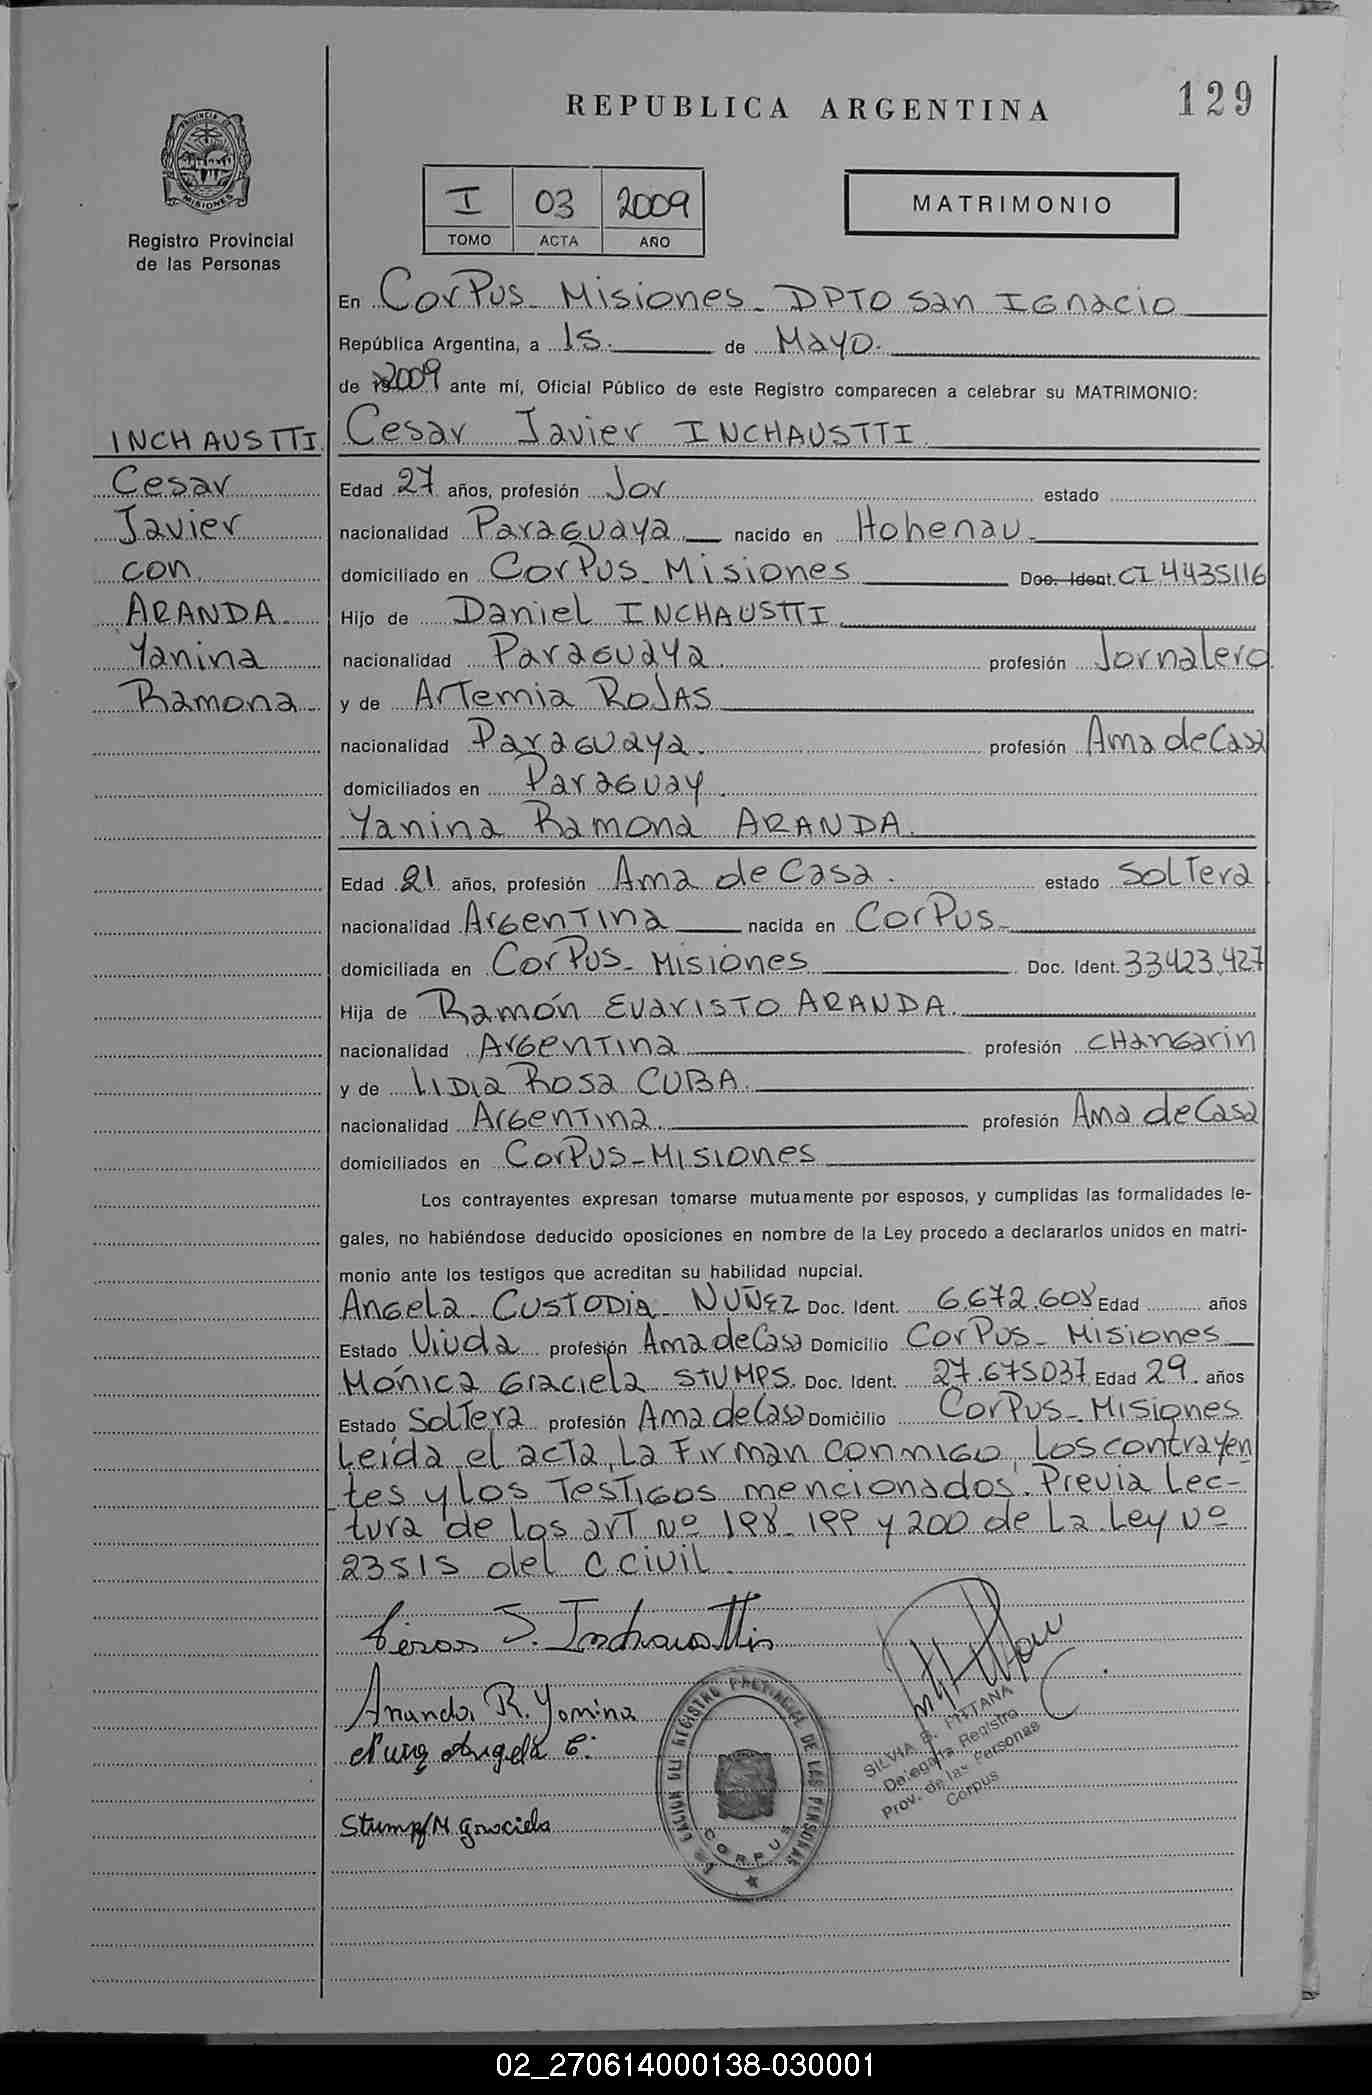 REPUBLICA ARGENTINA
129
PROVINCIA DE
MISIONES
Registro Provincial
de las Personas
I 03 2009
TOMO ACTA AÑO
MATRIMONIO
En Corpus - Misiones - DPTO San Ignacio
República Argentina, a 15. de Mayo.
de 2009 ante mí, Oficial Público de este Registro comparecen a celebrar su MATRIMONIO:
INCHAUSTTI
Cesar
Javier
con
ARANDA
Yanina
Ramona
Cesar Javier INCHAUSTTI
Edad 27 años, profesión Jor estado
nacionalidad Paraguaya nacido en Hohenau
domiciliado en Corpus - Misiones Doc. Ident. CI 4435116
Hijo de Daniel INCHAUSTTI
nacionalidad Paraguaya profesión Jornalero
y de Artemia ROJAS
nacionalidad Paraguaya. profesión Ama de Casa
domiciliados en Paraguay.
Yanina Ramona ARANDA.
Edad 21 años, profesión Ama de Casa. estado Soltera
nacionalidad Argentina nacida en Corpus
domiciliada en Corpus - Misiones Doc. Ident. 33.423.427
Hija de Ramón Evaristo ARANDA.
nacionalidad Argentina profesión Changarin
y de Lidia Rosa CUBA.
nacionalidad Argentina. profesión Ama de Casa
domiciliados en Corpus - Misiones
Los contrayentes expresan tomarse mutuamente por esposos, y cumplidas las formalidades le-
gales, no habiéndose deducido oposiciones en nombre de la Ley procedo a declararlos unidos en matri-
monio ante los testigos que acreditan su habilidad nupcial.
Angela Custodia NUÑEZ Doc. Ident. 6.672.608 Edad años
Estado Viuda profesión Ama de Casa Domicilio Corpus - Misiones
Mónica Graciela STUMPS. Doc. Ident. 27.675037 Edad 29 años
Estado Soltera profesión Ama de Casa Domicilio Corpus - Misiones
Leída el acta, La Firman conmigo, los contrayen
tes y los Testigos mencionados. Previa Lec-
tura de los art Nº 198 - 199 y 200 de La Ley Nº
23515 del C. Civil.
Cesar J. Inchaustti
Aranda, R. Yanina
Nuñez Angela C.
Stumpf M Graciela
DELEGACION DEL REGISTRO PROVINCIAL DE LAS PERSONAS
CORPUS
SILVIA B. PITANA
Delegada Registro
Prov. de las Personas
Corpus
02_270614000138-030001